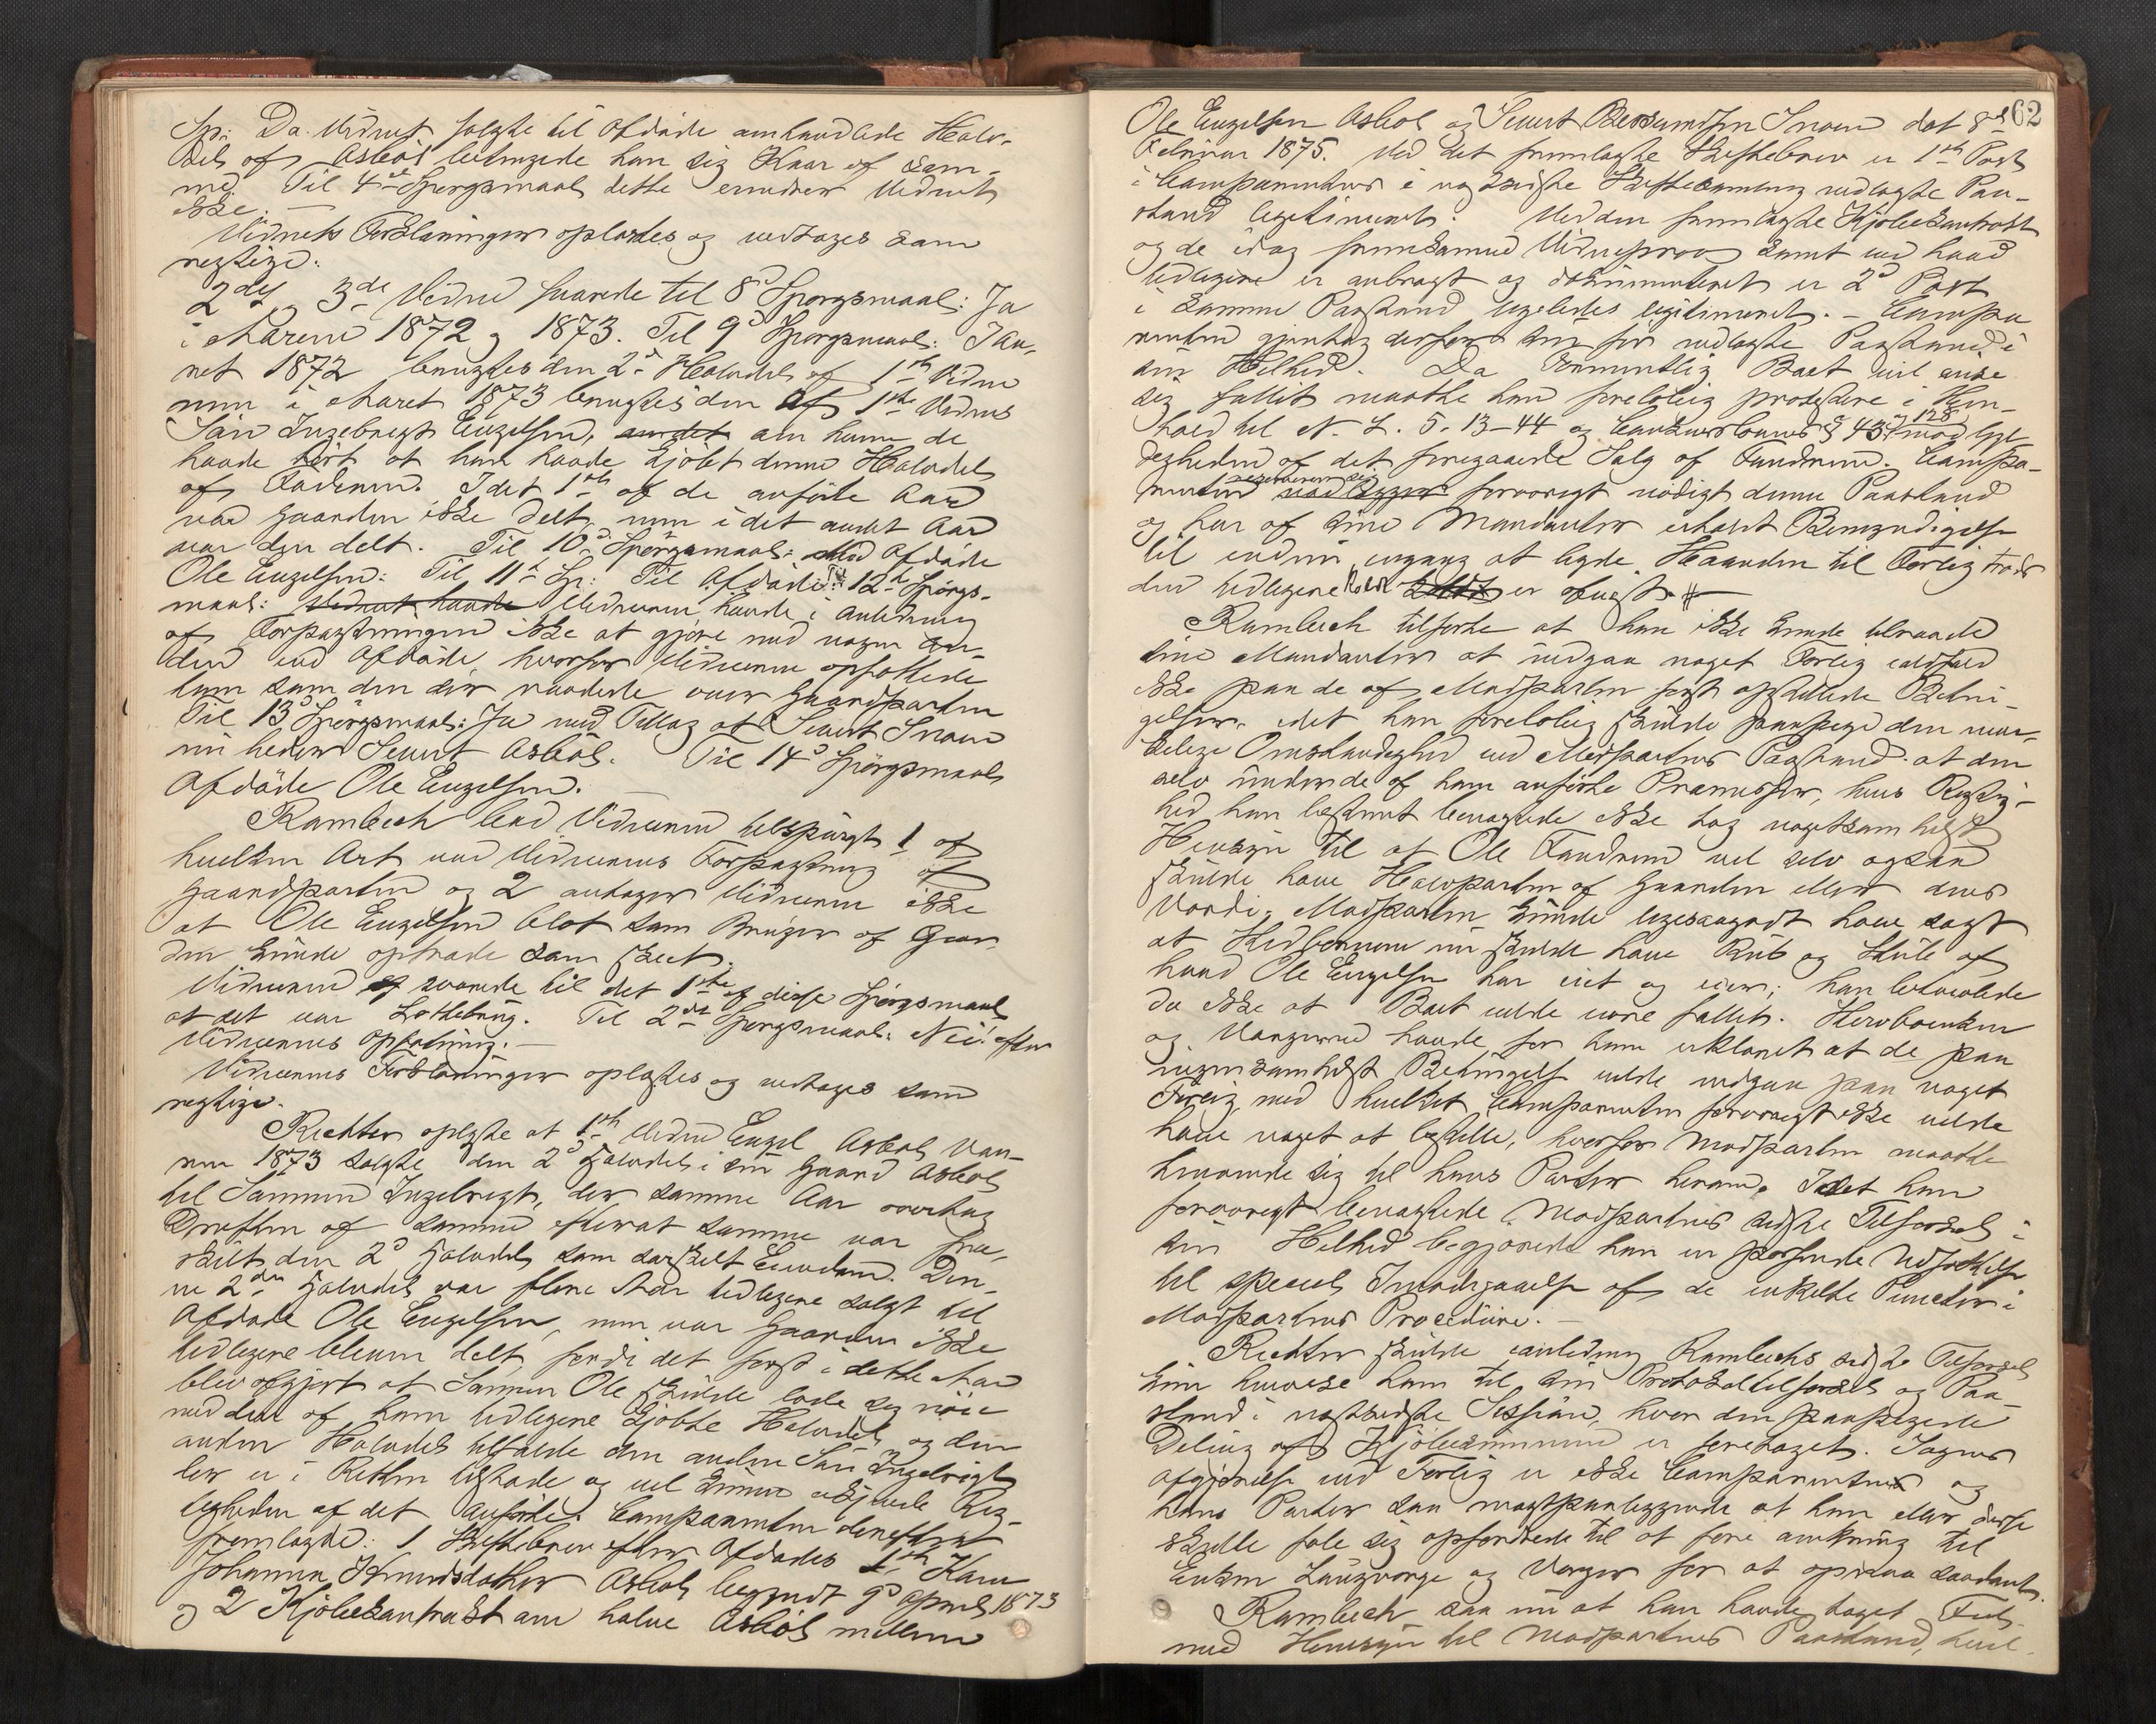 Sp: Da Vidnet solgte til Afdøde omhandlede Halv-
del af Asbøl betingede han sig Kaar af sam-
me. Til 4de Spørgsmaal dette erindrer Vidnet
ikke. —
Vidnets Forklaringer oplæstes og vedtages som
rigtige.
2det og 3de Vidne svarede til 8d Spørgsmaal: Ja
i Aarene 1872 og 1873. Til 9d Spørgsmaal: I Aa-
ret 1872 benyttedes den 2d Halvdel af 1ste Vidne
men i Aaret 1873 benyttedes den af 1ste Vidnes
Søn Ingebregt Engelsen, om hvem de
havde hørt at han havde kjøbt denne Halvdel
af Faderen. I det 1ste af de anførte Aar
var Gaarden ikke delt, men i det andet Aar
var den delt. Til 10d Spørgsmaal: Med Afdøde
Ole Engelsen. Til 11te Sp: Til Afdøde. Til 12te Spørgs-
maal: Vidnet havde Vidnerne havde i Anledning
af Forpagtningen ikke at gjøre med nogen an-
den end Afdøde, hvorfor Vidnerne opfattede
ham som den der raadede over Gaardparten
Til 13d Spørgsmaal: Ja med Tillæg at Sivert Snoen
nu heder Sivert Asbøl. Til 14d Spørgsmaal
Afdøde Ole Engelsen. —
Rambech bad Vidnerne tilspurgt 1 af
hvilken Art var Vidnernes Forpagtning af
Gaardparten og 2 antager Vidnerne ikke
at Ole Engelsen blot som Bruger af Gaar-
den kunde optræde som skeet.
Vidnerne svarede til det 1ste af disse Spørgsmaal
at det var Lottebrug. Til 2det Spørgsmaal: Nei! efter
Vidnernes Opfatning. —
Vidnernes Forklaringer oplæstes og vedtages som
rigtige.
Richter oplyste at 1ste Vidne Engel Asbøl Vaa-
ren 1873 solgte den 2d Halvdel i sin Gaard Asbøl
til Sønnen Ingebregt, der samme Aar overtog
Driften af samme efterat samme var fra-
skilt den 2d Halvdel som særskilt Eiendom. Den-
ne 2den Halvdel var flere Aar tidligere solgt til
Afdøde Ole Engelsen, men var Gaarden ikke
tidligere bleven delt fordi det først i dette Aar
blev afgjort at Sønnen Ole skulde lade sig nøie
med den af ham tidligere kjøbte Halvdel og den
anden Halvdel tilfalde den anden Søn Ingebrigt
der er i Retten tilstede og vil kunne erkjende Rig-
tigheden af det anførte. Comparenten derefter
fremlagde: 1 Skiftebrev efter Afdødes 1ste Kone
Johanna Knudsdatter Asbøl begyndt 9d April 1873
og 2 Kjøbekontrakt om halve Asbøl mellem
62
Ole Engelsen Asbøl og Sivert Snoen dat 8d
Februar 1875. Ved det fremlagte Skiftebrev er 1ste Post
i Comparentens i næstsidste Skiftesamling nedlagte Paa-
stand legitimeret. Ved den fremlagte Kjøbekontrakt
og de idag fremkomne Vidneprov samt ved hvad
tidligere er anbragt og dokumenteret er 2d Post
i samme Paastand ligeledes legitimeret. — Compa-
renten gjentog derfor sin før nedlagte Paastand i
sin Helhed. Da Formentlig Boet vil anse
sig fallit maatte han foreløbig protestere i Hen-
hold til N. L. 5-13-44 og Concurslovens § 43 og 128 mod Gyl-
digheden af det foregaaede Salg af Fundrem. Compa-
renten forøvrigt nødigt denne Paastand
og har af sine Mandanter erholdt Bemyndigelse
til endnu engang at byde Haanden til Forlig trods
den tidligere Kold er afvist. —
Rambech tilførte at han ikke kunde tilraade
sine Mandanter at indgaa noget Forlig ialdfald
ikke paa de af Modparten sist opstillede Betin-
gelser, idet han foreløbig skulde paapege den mær-
kelige Omstændighed ved Modpartens Paastand at den
selv under de af ham anførte Præmisser, hvis Rigtig-
hed han bestemt benægtede ikke tog nogetsomhelst
Hensyn til at Ole Fundrem vel selv ogsaa
skulde have Halvparten af Gaarden eller dens
Værdi. Modparten kunde ligesaagodt have sagt
at Stedbørnene nu skulde have Rub og Stub af
hvad Ole Engelsen har eiet og eier; han betvivlede
da ikke at Boet vilde være fallit. Skræbønken
og Vangerud havde for ham erklæret at de paa
ingensomhelst Betingelse vilde indgaa paa noget
Forlig, med hvilket Comparenten forøvrigt ikke vilde
have noget at bestille, hvorfor Modparten maatte
henvende sig til hans Parter herom. Idet han
forøvrigt benægtede Modpartens sidste Tilførsel i
sin Helhed begjærede han en passende Udsættelse
til speciel Imødegaaelse af de enkelte Puncter i
Modpartens Procedure. —
Richter skulde i anledning Rambechs sidste Tilførsel
kun henvise ham til sin Protokoltilførsel og Paa-
stand i næstsidste Session, hvor den paapegede
Deling af Kjøbesummen er foretaget. Sagens
Afgjørelse ved Forlig er ikke Comparenten og
hans Parter saa magtpaaliggende at han eller disse
skulle føle sig opfordrede til at føre anketning til
Enken Laugværge og Værger for at opnaa saadant.
Rambech saa nu at han havde taget Feil
med Hensyn til Modpartens Paastand, hvil-